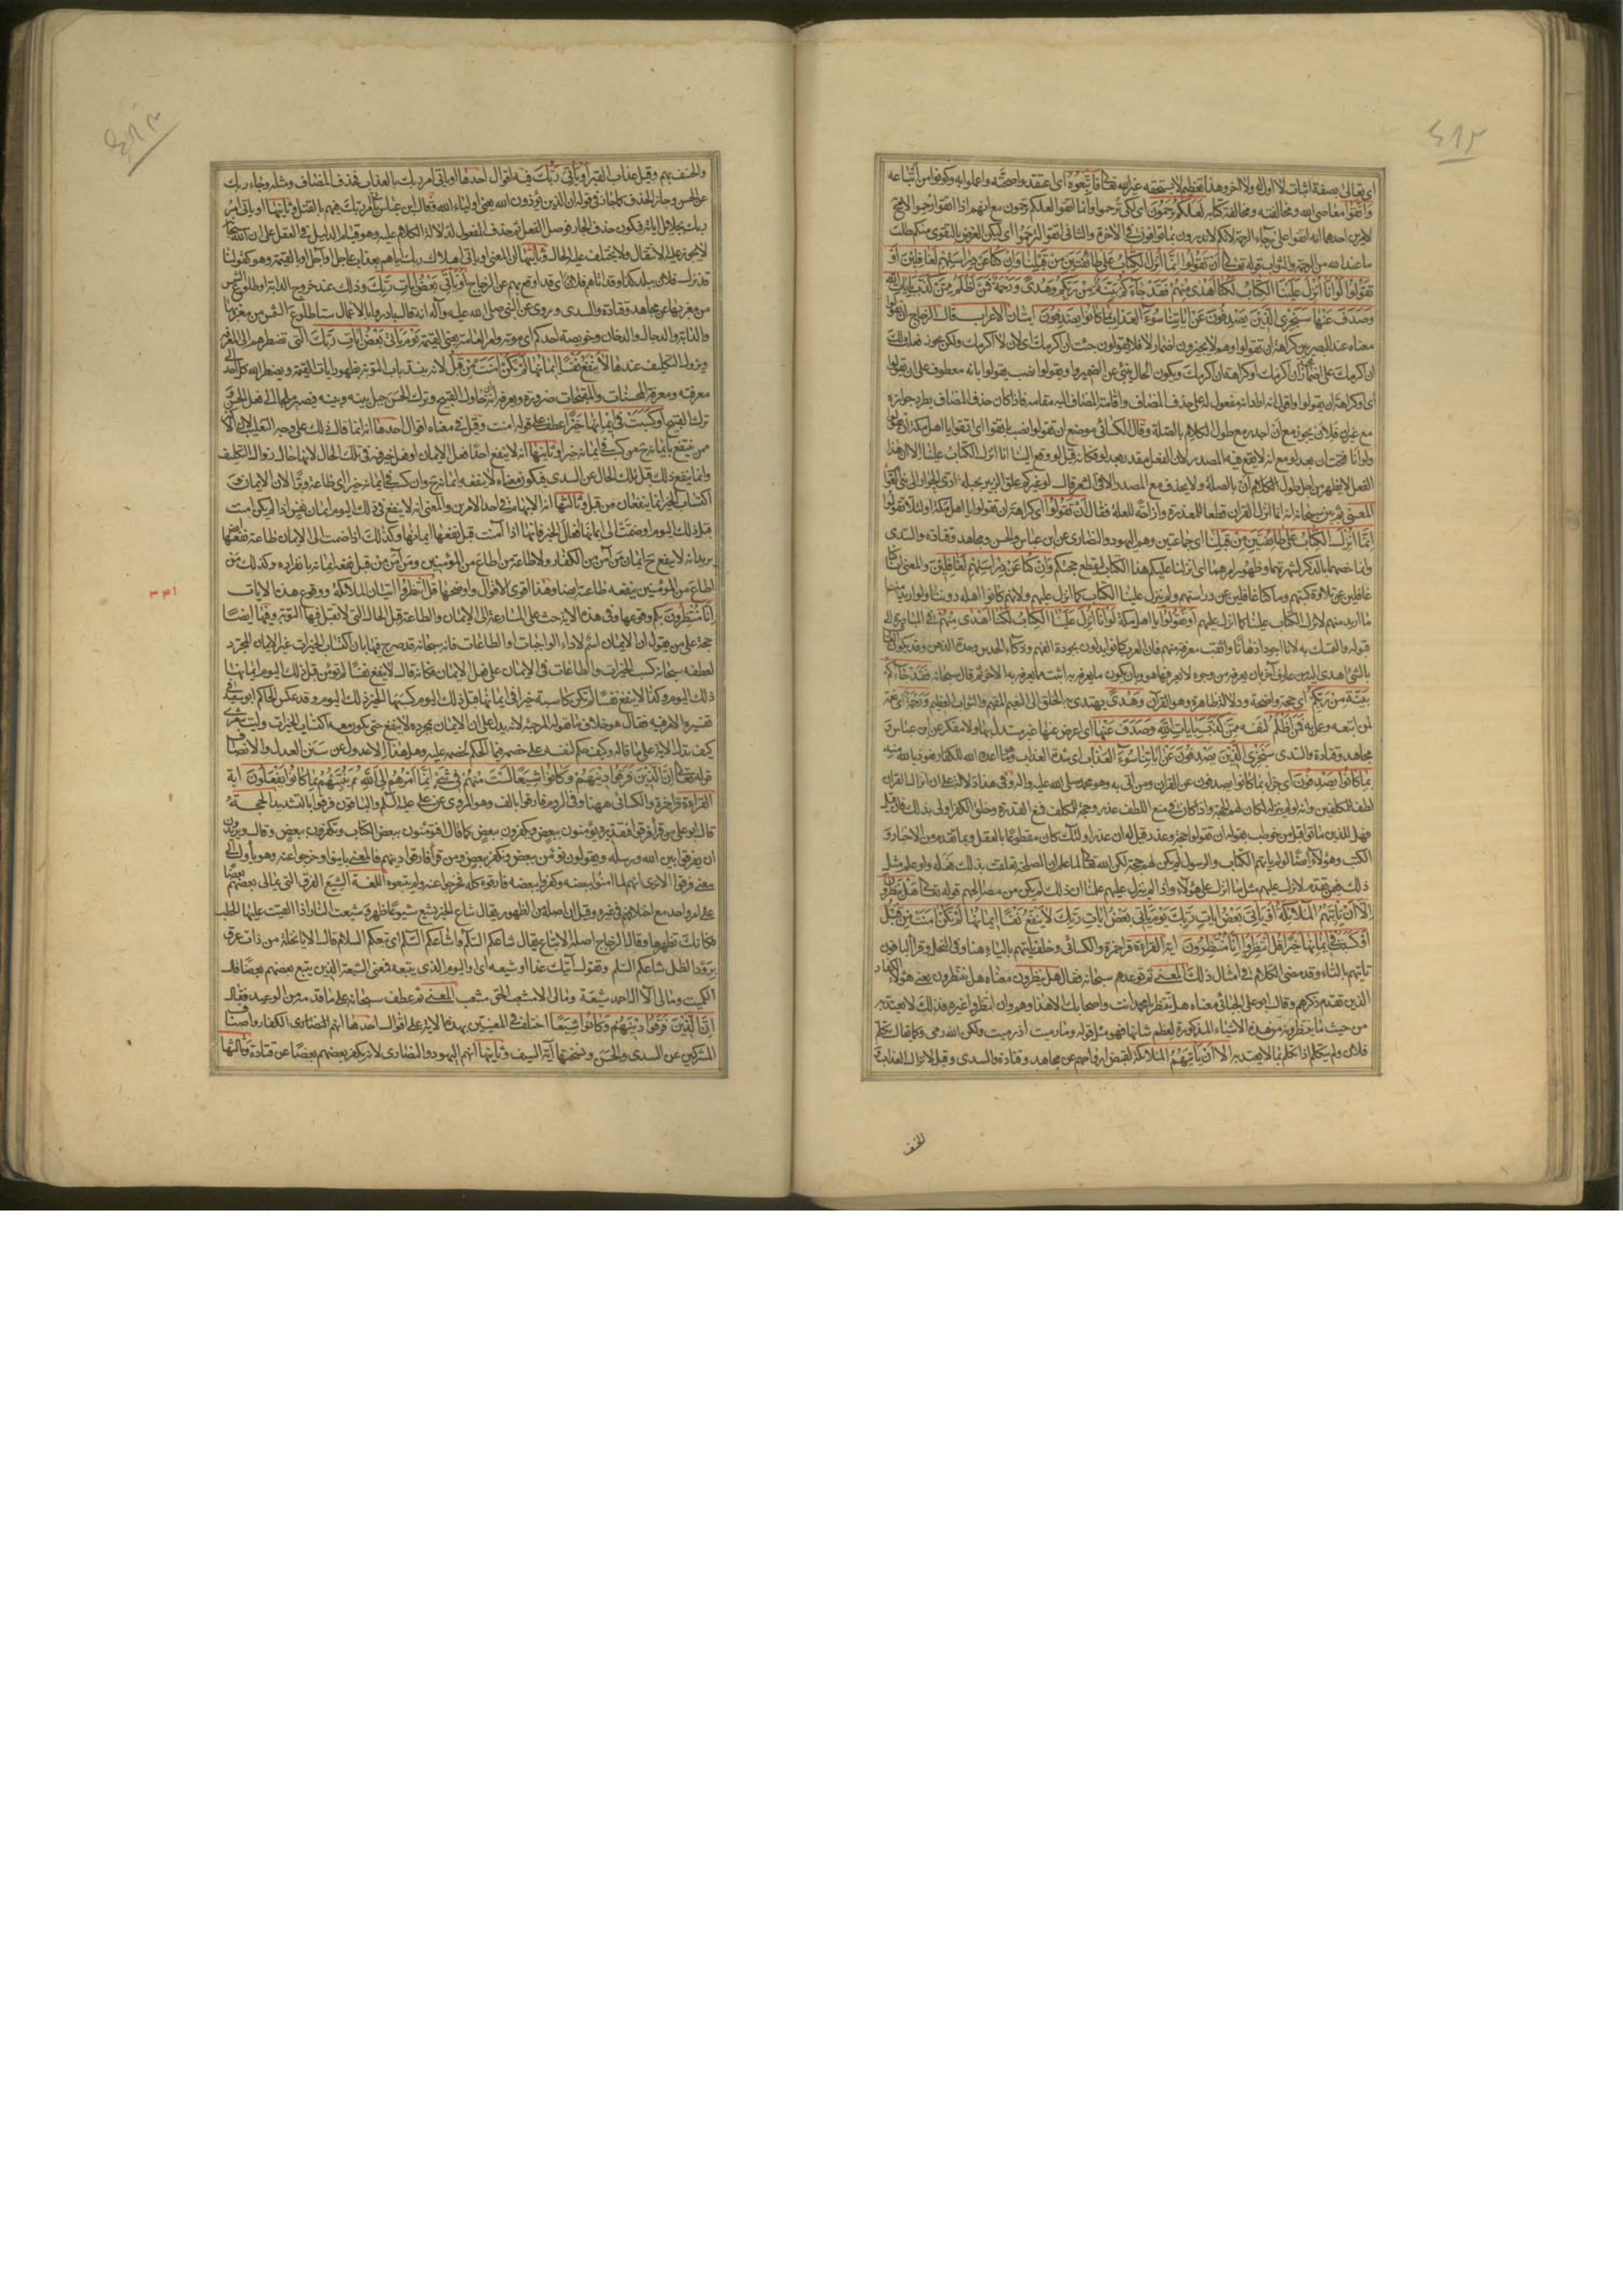 ٤١٢
اى تعالى صفة اثبات لا اول له ولا اخر وهذا تعظيم لا يستحقه غير الله تعالى فاتبعوه اى اعتقدوا صحته واعملوا به وكونوا من اتباعه
واتقوا معاصى الله ومخالفته ومخالفة كتابه لعلكم ترحمون اى لكى ترحموا وانما اتقوا لعلكم ترحمون مع انهم اذا اتقوا رحموا لا محة
لامرين احدهما انه اتقوا على رجاء الرحمة لانكم لا تدرون بما توافون فى الاخرة والثانى اتقوا لترحموا اى ليكن الغرض بالتقوى منكم طلب
ما عند الله من الرحمة والثواب قوله تعالى ان تقولوا انما انزل الكتاب على طائفتين من قبلنا وان كنا عن دراستهم لغافلين او
تقولوا لو انا انزل علينا الكتاب لكنا اهدى منهم فقد جاءكم بينة من ربكم وهدى ورحمة فمن اظلم ممن كذب بايات الله
وصدف عنها سنجزى الذين يصدفون عن اياتنا سوء العذاب بما كانوا يصدفون ايتان الاعراب قال الزجاج ان تقولوا
معناه عند البصريين كراهة ان تقولوا وهم لا يجيزون اضمار لا فلا يقولون جئت ان اكرمك اى لان لا اكرمك ولكن يجوز فعلت ذلك
ان اكرمك على اضمار
اى او كراهة ان يقولوا
الفعل
المعنى ثم بين سبحانه انه انما انزل القران قطعا للمعذرة وازاحة للعلة فقال ان تقولوا اى كراهة ان تقولوا يا اهل مكة او لئلا تقولوا
انما انزل الكتاب على طائفتين من قبلنا اى جماعتين وهم اليهود والنصارى عن ابن عباس والحسن ومجاهد وقتادة والسدى
وانما خصهما بالذكر لشهرتهما وظهور امرهما اى انزلنا عليكم هذا الكتاب لقطع حجتكم وان كنا عن دراستهم لغافلين والمعنى انا كنا
غافلين عن تلاوة كتبهم وما كنا غافلين عن دراستهم ولم ينزل علينا الكتاب كما انزل عليهم ولانهم كانوا اهله دوننا ولو اريد منا
ما اريد منهم لانزل الكتاب علينا كما انزل عليهم او تقولوا يا اهل مكة لو انا انزل علينا الكتاب لكنا اهدى منهم فى المبادرة الى
قبوله والتمسك به لانا اجود اذهانا واثبت معرفة منهم فان العرب كانوا يدلون بجودة الفهم وذكاء الحدس وحدة الذهن وقد يكون العارف
بالشئ اهدى اليه من عارف آخر بان يعرفه من وجوه لا يعرفها هو وبان يكون ما يعرفه به اثبت مما يعرفه به الاخر ثم قال سبحانه فقد جاءكم
بينة من ربكم اى حجة واضحة ودلالة ظاهرة وهو القرآن وهدى يهتدى به الخلق الى النعيم المقيم والثواب العظيم ورحمة اى نعمة
لمن اتبعه وعمل به فمن اظلم لنفسه ممن كذب بايات الله وصدف عنها اى اعرض عنها غير مستدل بها ولا مفكر عن ابن عباس و
مجاهد وقتادة والسدى سنجزى الذين يصدفون عن اياتنا سوء العذاب اى شدة العذاب وهو ما اعده الله للكفار نعوذ بالله منه
بما كانوا يصدفون اى جزاء بما كانوا يصدفون عن القران ومن اتى به وهو محمد صلى الله عليه واله وفى هذا دلالة على ان انزال القران
لطف للمكلفين وانه لو لم ينزله لكان لهم الحجة واذا كان فى منع اللطف عذر وحجة للمكلف فمنع القدرة وخلق الكفر اولى بذلك فان قيل
فهل للذين ماتوا قبل من خوطب بقوله ان تقولوا حجة وعذر قيل له ان عذر اولئك كان مقطوعا بالعقل وبما تقدم من الاخبار و
الكتب وهؤلاء ايضا لو لم ياتهم الكتاب والرسول لم يكن لهم حجة لكن الله تعالى لما علم ان المصلحة تعلقت بذلك فعله ولو علم مثل
ذلك فيمن تقدم لانزل عليهم مثل ما انزل على هؤلاء واذا لم ينزل عليهم علمنا ان ذلك لم يكن من مصالحهم قوله تعالى هل ينظرون
الا ان تاتيهم الملائكة او ياتى ربك او ياتى بعض ايات ربك يوم ياتى بعض ايات ربك لا ينفع نفسا ايمانها لم تكن امنت من قبل
او كسبت فى ايمانها خيرا قل انتظروا انا منتظرون اية القراءة قرا حمزة والكسائى وخلف ياتيهم بالياء هنا وفى النحل وقرا الباقون
تاتيهم بالتاء وقد مضى الكلام فى امثال ذلك المعنى ثم توعدهم سبحانه فقال هل ينظرون معناه هل ينتظرون يعنى هؤلاء الكفار
الذين تقدم ذكرهم وقال ابو على الجبائى معناه هل تنتظر يا محمد انت واصحابك الا هذا وهم وان انتظروا غيره فذلك لا يعتد به
من حيث ما ينتظرونه من هذه الاشياء المذكورة لعظم شانها فهو مثل قوله وما رميت اذ رميت ولكن الله رمى وكما يقال تكلم
فلان ولم يتكلم اذا تكلم بما لا يعتد به الا ان تاتيهم الملائكة لقبض ارواحهم عن مجاهد وقتادة والسدى وقيل لانزال العذاب
والخسف
٤١٣
والخسف بهم وقيل عذاب القبر او ياتى ربك فيه اقوال احدها او ياتى امر ربك بالعذاب فحذف المضاف ومثله وجاء ربك
عن الحسن وجاز الحذف كما جاز فى قوله ان الذين يؤذون الله يعنى اولياء الله وقال ابن عباس ياتى امر ربك فيهم بالقتل وثانيها او ياتى امر
ربك بجلائل اياته فيكون حذف الجار فوصل الفعل ثم حذف المفعول لدلالة الكلام عليه وهو قيام الدليل فى العقل على ان الله سبحانه
لا يجوز عليه الانتقال ولا يختلف عليه الحال وثالثها ان المعنى او ياتى اهلاك ربك اياهم بعذاب عاجل او آجل او بالقيمة وهو كقولنا
قد نزل فلان ببلد كذا وقد اتاهم فلان اى قد اوقع بهم عن الزجاج او ياتى بعض ايات ربك وذلك عند خروج الدابة او طلوع الشمس
من مغربها عن مجاهد وقتادة والسدى وروى عن النبى صلى الله عليه وآله انه قال بادروا بالاعمال ستا طلوع الشمس من مغربها
والدابة والدجال والدخان وخويصة احدكم اى موته وامر العامة يعنى القيمة يوم ياتى بعض ايات ربك التى تضطرهم الى المعرفة
ويزول التكليف عندها لا ينفع نفسا ايمانها لم تكن امنت من قبل لانه ينسد باب التوبة بظهور ايات القيمة ويضطر الله كل احد الى
معرفته ومعرفة المحسنات والمقبحات ضرورة ويعرفه انه ان حاول القبيح وترك الحسن حيل بينه وبينه فيصير ملجأ الى فعل الحسن و
ترك القبيح او كسبت فى ايمانها خيرا عطف على قوله امنت وقيل فى معناه اقوال احدها انه انما قال ذلك على وجه التغليب لان الاكثر
ممن ينتفع بايمانه حينئذ من كسب فى ايمانه خيرا وثانيها انه لا ينفع احدا فعل الايمان ولا فعل خير فيه فى تلك الحال لانها حال زوال التكليف
وانما ينفع ذلك قبل تلك الحال عن السدى فيكون معناه لا ينفعه ايمانه ح وان كسب فى ايمانه خيرا اى طاعة وبرا لان الايمان و
اكتساب الخير انما ينفعان من قبل وثالثها انه الابهام فى احد الامرين والمعنى انه لا ينفع فى ذلك اليوم ايمان نفس اذا لم يكن امنت
قبل ذلك اليوم او ضمت الى ايمانها افعال الخير فانها اذا آمنت قبل نفعها ايمانها وكذلك اذا ضمت الى الايمان طاعة نفعتها ايضا
يريد انه لا ينفع ح ايمان من آمن من الكفار ولا طاعة من اطاع من المؤمنين ومن آمن من قبل نفعه ايمانه بانفراده وكذلك من
اطاع من المؤمنين ينفعه طاعته ايضا وهذا اقوى الاقوال واوضحها قل انتظروا اتيان الملائكة ووقوع هذه الايات
٣٣١
انا منتظرون بكم وقوعها وفى هذه الاية حث على المسارعة الى الايمان والطاعة قبل الحال التى لا تقبل فيها التوبة وفيها ايضا
حجة على من يقول ان الايمان اسم لاداء الواجبات والطاعات فانه سبحانه قد صرح فيها بان اكتساب الخيرات غير الايمان المجرد
لعطفه سبحانه كسب الخيرات والطاعات فى الايمان على فعل الايمان فكانه قال لا ينفع نفسا لم تؤمن قبل ذلك اليوم ايمانها
ذلك اليوم وكذا لا ينفع نفسا لم تكن كاسبة خيرا فى ايمانها قبل ذلك اليوم كسبها الخير ذلك اليوم وقد عكس الحاكم ابو سعيد فى
تفسيره الامر فيه فقال هو خلاف ما تقوله المرجئة لانه يدل على ان الايمان بمجرده لا ينفع حتى يكون معه اكتساب الخيرات وليت شعرى
كيف تدل الاية على ما قاله وكيف حكم لنفسه على خصمه فيما الحكم لخصمه عليه وهل هذا الا عدول عن سنن العدل والانصاف
قوله تعالى ان الذين فرقوا دينهم وكانوا شيعا لست منهم فى شئ انما امرهم الى الله ثم ينبئهم بما كانوا يفعلون اية
القراءة قرا حمزة والكسائى ههنا وفى الروم فارقوا بالف وهو المروى عن على عليه السلام والباقون فرقوا بالتشديد الحجة
قال ابو على من قرأ فرقوا فتقديره يؤمنون ببعض ويكفرون ببعض كما قال افتؤمنون ببعض الكتاب وتكفرون ببعض وقال ويريدون
ان يفرقوا بين الله ورسله ويقولون نؤمن ببعض ونكفر ببعض ومن قرأ فارقوا دينهم فالمعنى باينوا وخرجوا عنه وهو يأول الى
معنى فرقوا الا ترى انهم لما امنوا ببعضه وكفروا ببعضه فارقوه كله فخرجوا عنه ولم يتبعوه اللغة الشيع الفرق التى يمالى بعضهم بعضا
على امر واحد مع اختلافهم فى غيره وقيل ان اصله من الظهور يقال شاع الخبر يشيع شيوعا ظهر وشيعت النار اذا القيت عليها الحطب
فكانك تظهرها وقال الزجاج اصله الاتباع يقال شاعكم السلام واشاعكم السلم اى تبعكم السلام قال الا يا نخلة من ذات عرق
برود الظل شاعكم السلم وتقول آتيك غدا او شيعه اى او اليوم الذى يتبعه فمعنى الشيعة الذين يتبع بعضهم بعضا قال
الكميت ومالى الا آل احمد شيعة ومالى الا مشعب الحق مشعب المعنى ثم عطف سبحانه على ما قدمه من الوعيد فقال
ان الذين فرقوا دينهم وكانوا شيعا اختلف فى المعنيين بهذه الاية على اقوال احدها انهم النصارى الكفار واصناف
المشركين عن السدى والحسن ونسختها آية السيف وثانيها انهم اليهود والنصارى لانه يكفر بعضهم بعضا عن قتادة وثالثها